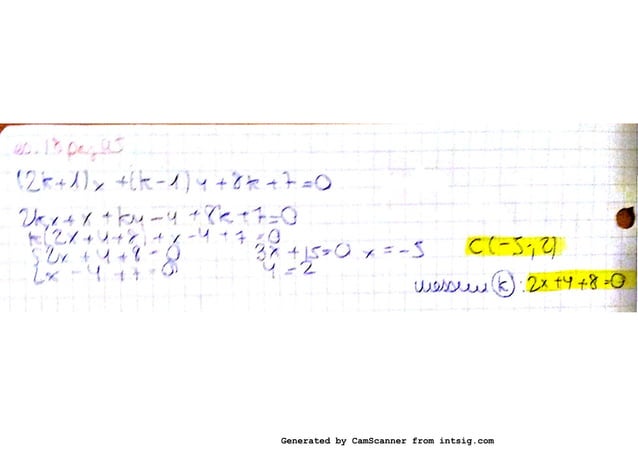 es. 13 pag 45
(2k+1)x +(k-1)y +8k+7=0
2kx+x+ky-y+8k+7=0
k(2x+y+8)+x-y+7=0
{2x+y+8=0 3x+15=0 x=-5 C(-5;2)
{x-y+7=0 y=2
nessun (k): 2x+y+8=0
Generated by CamScanner from intsig.com